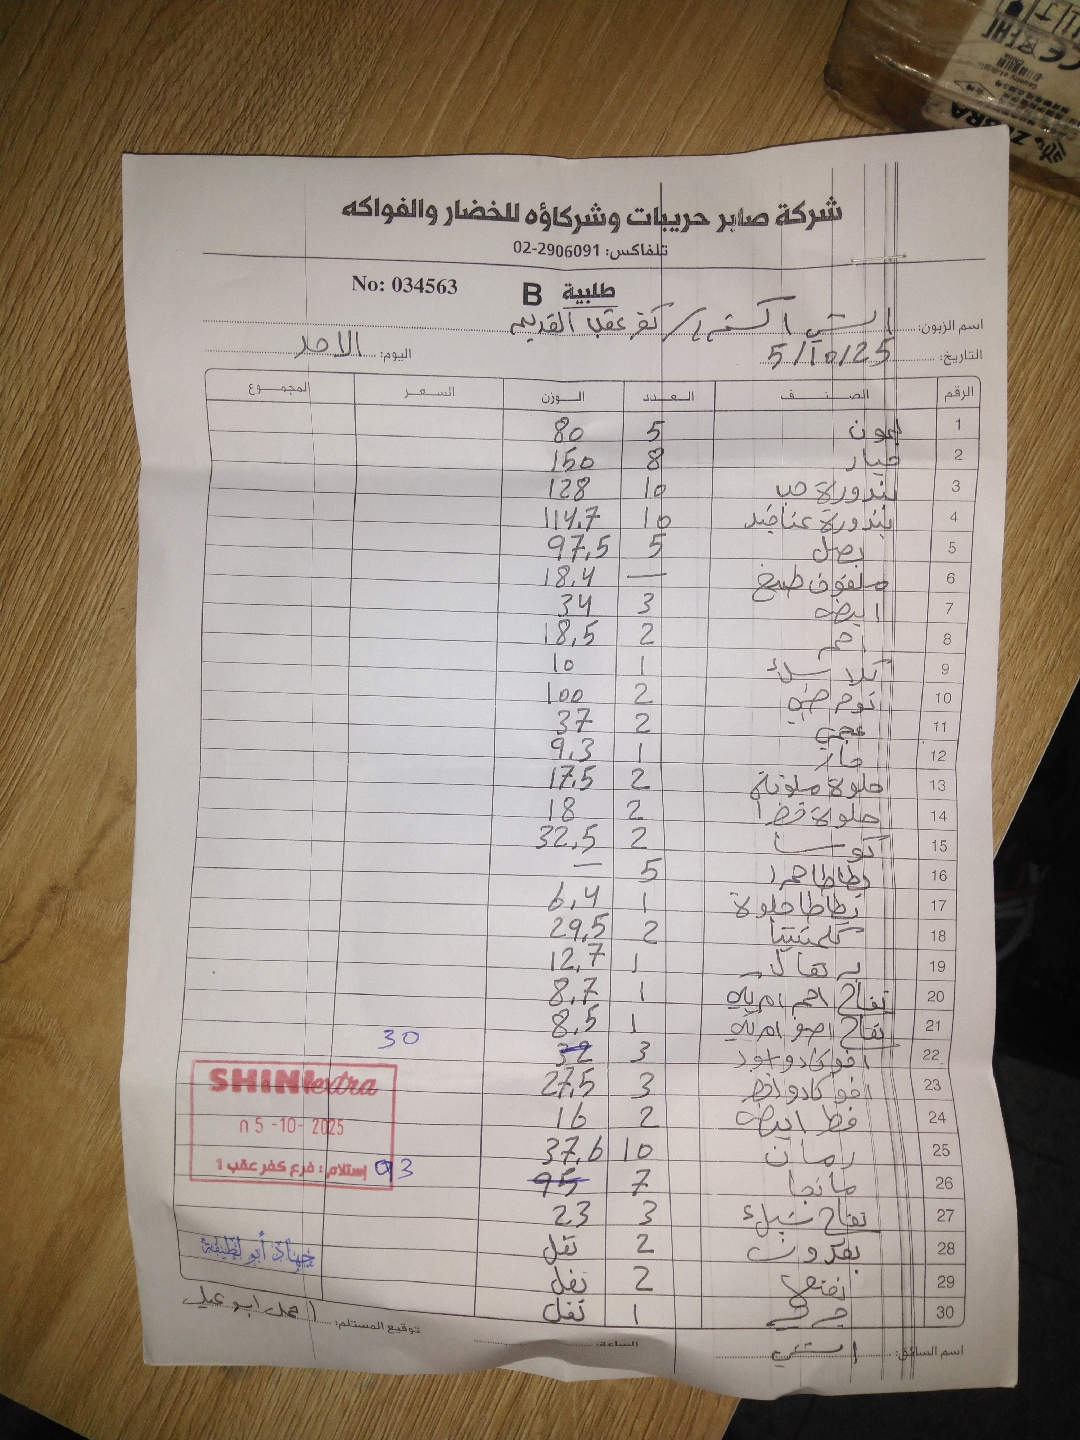 شركة صابر حريبات وشركاؤه للخضار والفواكه
تلفاكس: 02-2906091
No: 034563 طلبية B
اسم الزبون: كفر عقب القديم
التاريخ: 5/10/25 اليوم: الاحد
الرقم الصنف العدد الوزن السعر المجموع
1 ليمون 5 80
2 خيار 8 150
3 بندورة حب 10 128
4 بندورة عناقيد 10 114.7
5 بصل 5 97.5
6 ملفوف طبخ — 18.4
7 ابيض 3 34
8 احمر 2 18.5
9 1 10
10 توم 2 100
11 عجمي 2 37
12 حار 1 9.3
13 حلوة ملونة 2 17.5
14 حلوة خضرا 2 18
15 كوسا 2 32.5
16 بطاطا حمرا 5 —
17 بطاطا حلوة 1 6.4
18 كلمنتينا 2 29.5
19 برتقال 1 12.7
20 تفاح احمر 1 8.7
21 تفاح اصفر 1 8.5
22 افوكادو 3 32 30
23 افوكادو 3 27.5
24 ابيض 2 16
25 رمان 10 37.6
26 مانجا 7 95 93
27 تفاح 3 23
28 2 نقل
29 2 نقل
30 1 نقل
SHINI extra
05-10-2025
إستلام: فرع كفر عقب 1
جهاد أبو لطيفة
اسم السائق: الساعة: توقيع المستلم: